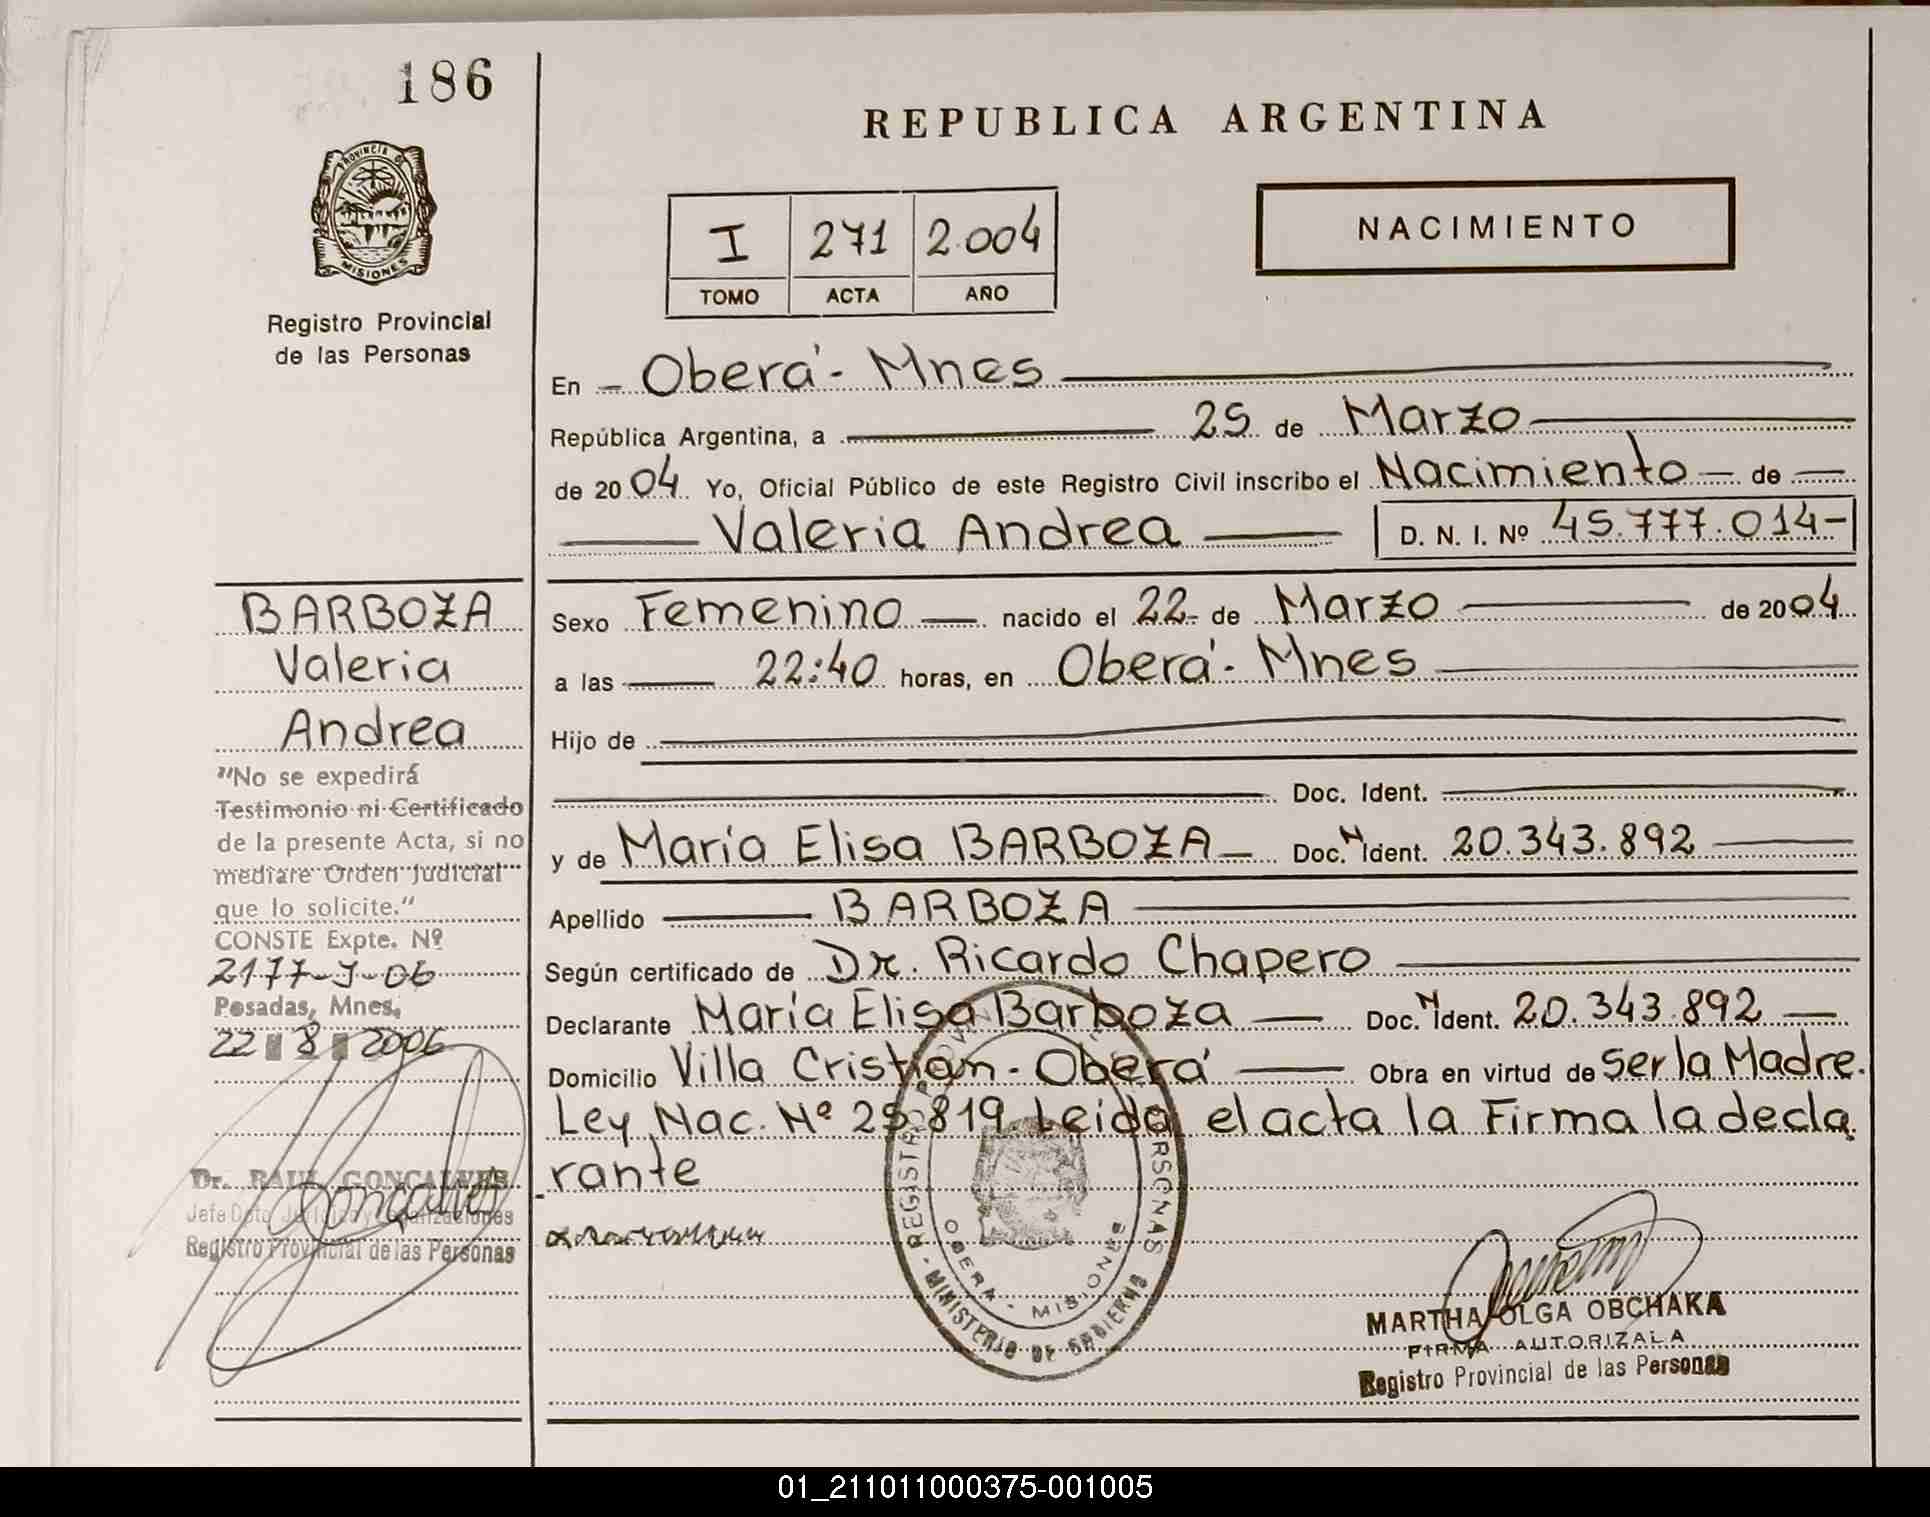 186
REPUBLICA ARGENTINA
PROVINCIA DE
MISIONES
Registro Provincial
de las Personas
I 271 2.004
TOMO ACTA AÑO
NACIMIENTO
En Oberá - Mnes
República Argentina, a 25 de Marzo
de 2004 Yo, Oficial Público de este Registro Civil inscribo el Nacimiento de
Valeria Andrea D. N. I. Nº 45.777.014-
BARBOZA
Valeria
Andrea
"No se expedirá
Testimonio ni Certificado
de la presente Acta, si no
mediare Orden Judicial
que lo solicite."
CONSTE Expte. Nº
2177-J-06
Posadas, Mnes.
22 8 2006
Dr. RAUL GONCALVES
Registro Provincial de las Personas
Sexo Femenino nacido el 22 de Marzo de 2004
a las 22:40 horas, en Oberá - Mnes
Hijo de
Doc. Ident.
y de María Elisa BARBOZA Doc. N Ident. 20.343.892
Apellido BARBOZA
Según certificado de Dr. Ricardo Chapero
Declarante María Elisa Barboza Doc. N Ident. 20.343.892
Domicilio Villa Cristian - Oberá Obra en virtud de Ser la Madre.
Ley Nac. Nº 25.819 Leida el acta la Firma la decla
rante
OBERA - MISIONES
MINISTERIO DE GOBIERNO
MARTHA OLGA OBCHAKA
FIRMA AUTORIZADA
Registro Provincial de las Personas
01_211011000375-001005